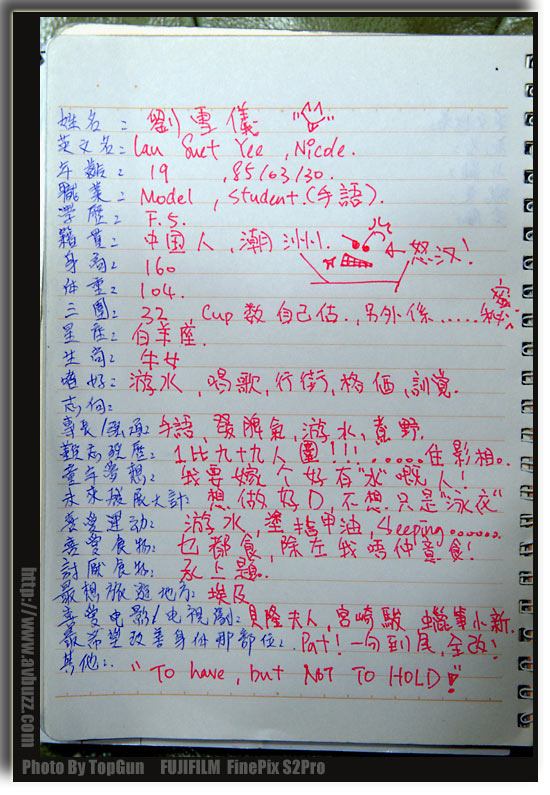 姓名： 劉雪儀
英文名： Lau Suet Yee , Nicole.
年齡： 19 , 85/03/30.
職業： Model , student.(手語).
學歷： F.5.
籍貫： 中国人 , 潮州.
怒汉!
身高： 160
体重： 104.
三圍： 32 , Cup 数自己估 , 另外係.....秘密
星座： 白羊座.
生肖： 牛女
嗜好： 游水 , 唱歌 , 行街 , 格価 , 訓覚.
志向：
專長/強項： 手語 , 發脾氣 , 游水 , 煮野.
難忘經歷： 1比九十九人圍!!!......住影相。
童年夢想： 我要嫁个好有"水"嘅人!
未來發展大計： 想做好D, 不想只是"泳衣"
喜愛運动： 游水 , 塗指甲油 , Sleeping......
喜愛食物： 乜都食 , 除左我唔仲意食!
討厭食物： 承上題。
最想旅遊地方： 埃及
喜愛电影/电視劇： 貝隆夫人 , 宮崎駿 蠟筆小新.
最希望改善身体那部位： Pat! 一向到尾, 全改!
其他： "To have, but NOT TO HOLD!"
http://www.avbuzz.com
Photo By TopGun FUJIFILM FinePix S2Pro